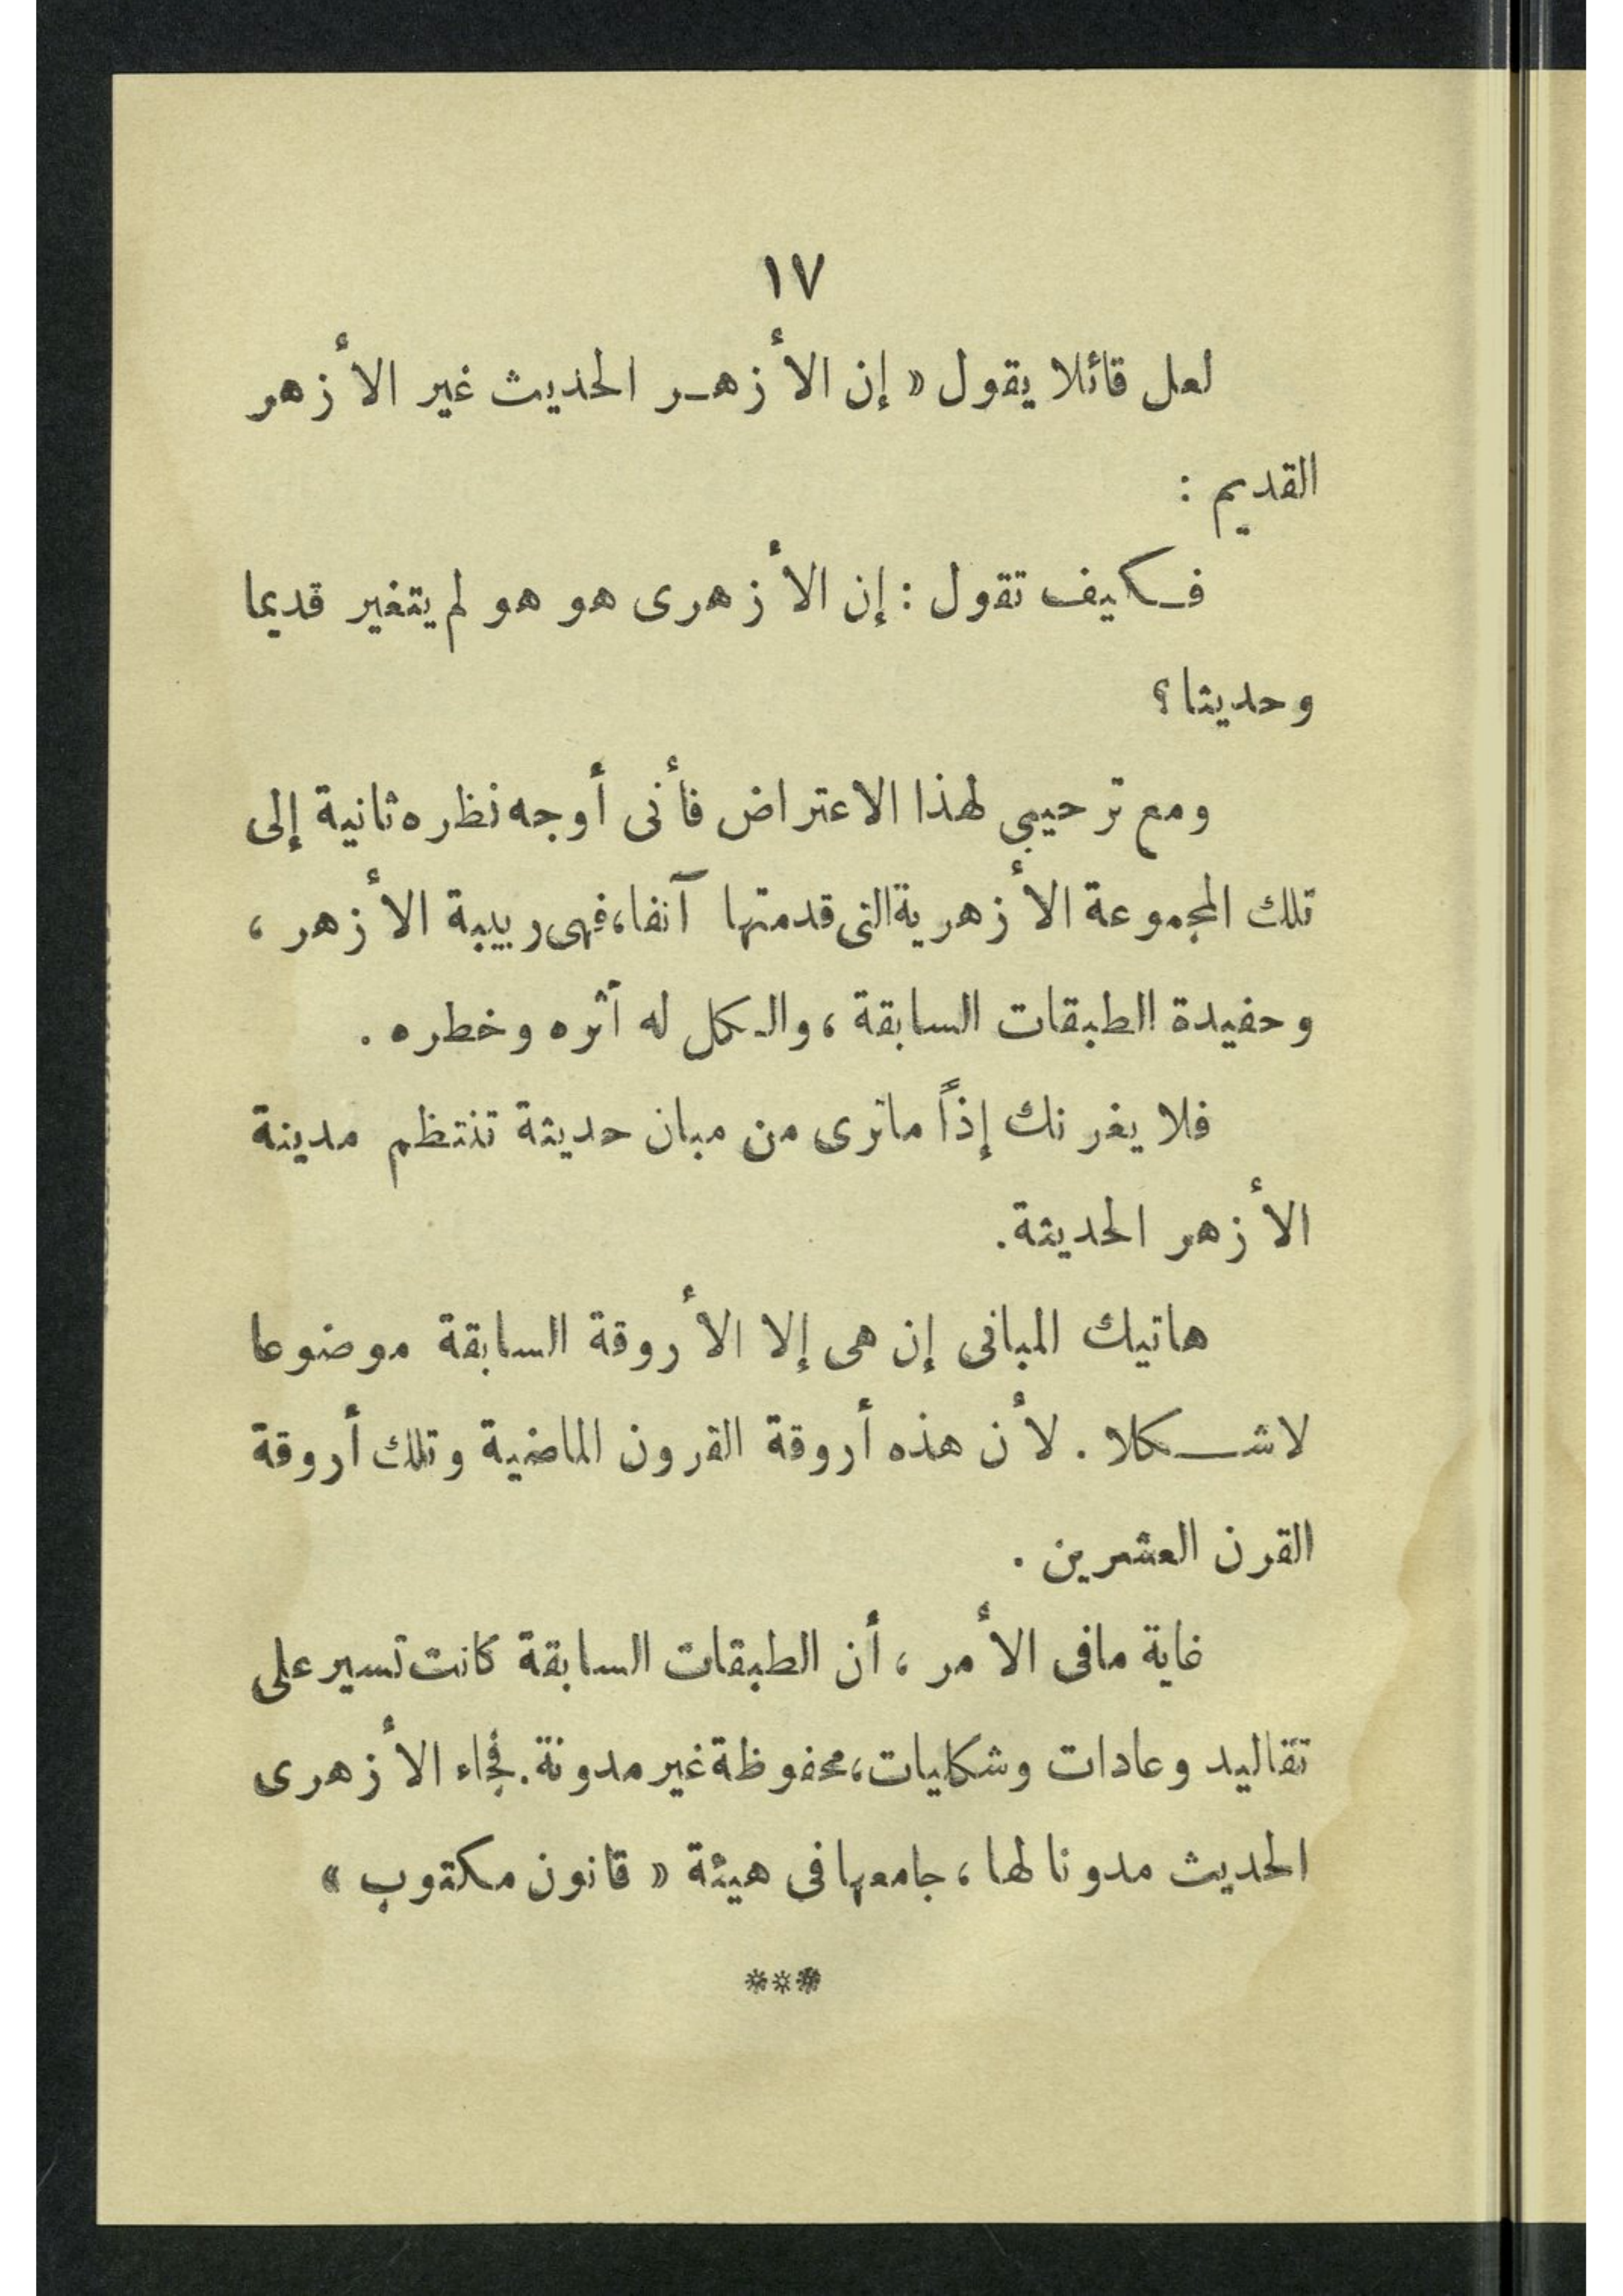 ١٧
لعل قائلا يقول « إن الأزهر الحديث غير الأزهر
القديم :
فكيف تقول : إن الأزهرى هو هو لم يتغير قديما
وحديثا ؟
ومع ترحيبى لهذا الاعتراض فأنى أوجه نظره ثانية إلى
تلك المجموعة الأزهرية التى قدمتها آنفا، فهى ربيبة الأزهر ،
وحفيدة الطبقات السابقة ، والكل له أثره وخطره .
فلا يغرنك إذاً ماترى من مبان حديثة تنتظم مدينة
الأزهر الحديثة.
هاتيك المبانى إن هى إلا الأروقة السابقة موضوعا
لاشكلا . لأن هذه أروقة القرون الماضية وتلك أروقة
القرن العشرين .
غاية مافى الأمر ، أن الطبقات السابقة كانت تسير على
تقاليد وعادات وشكليات، محفوظة غير مدونة. فجاء الأزهرى
الحديث مدونا لها ، جامعها فى هيئة « قانون مكتوب »
***